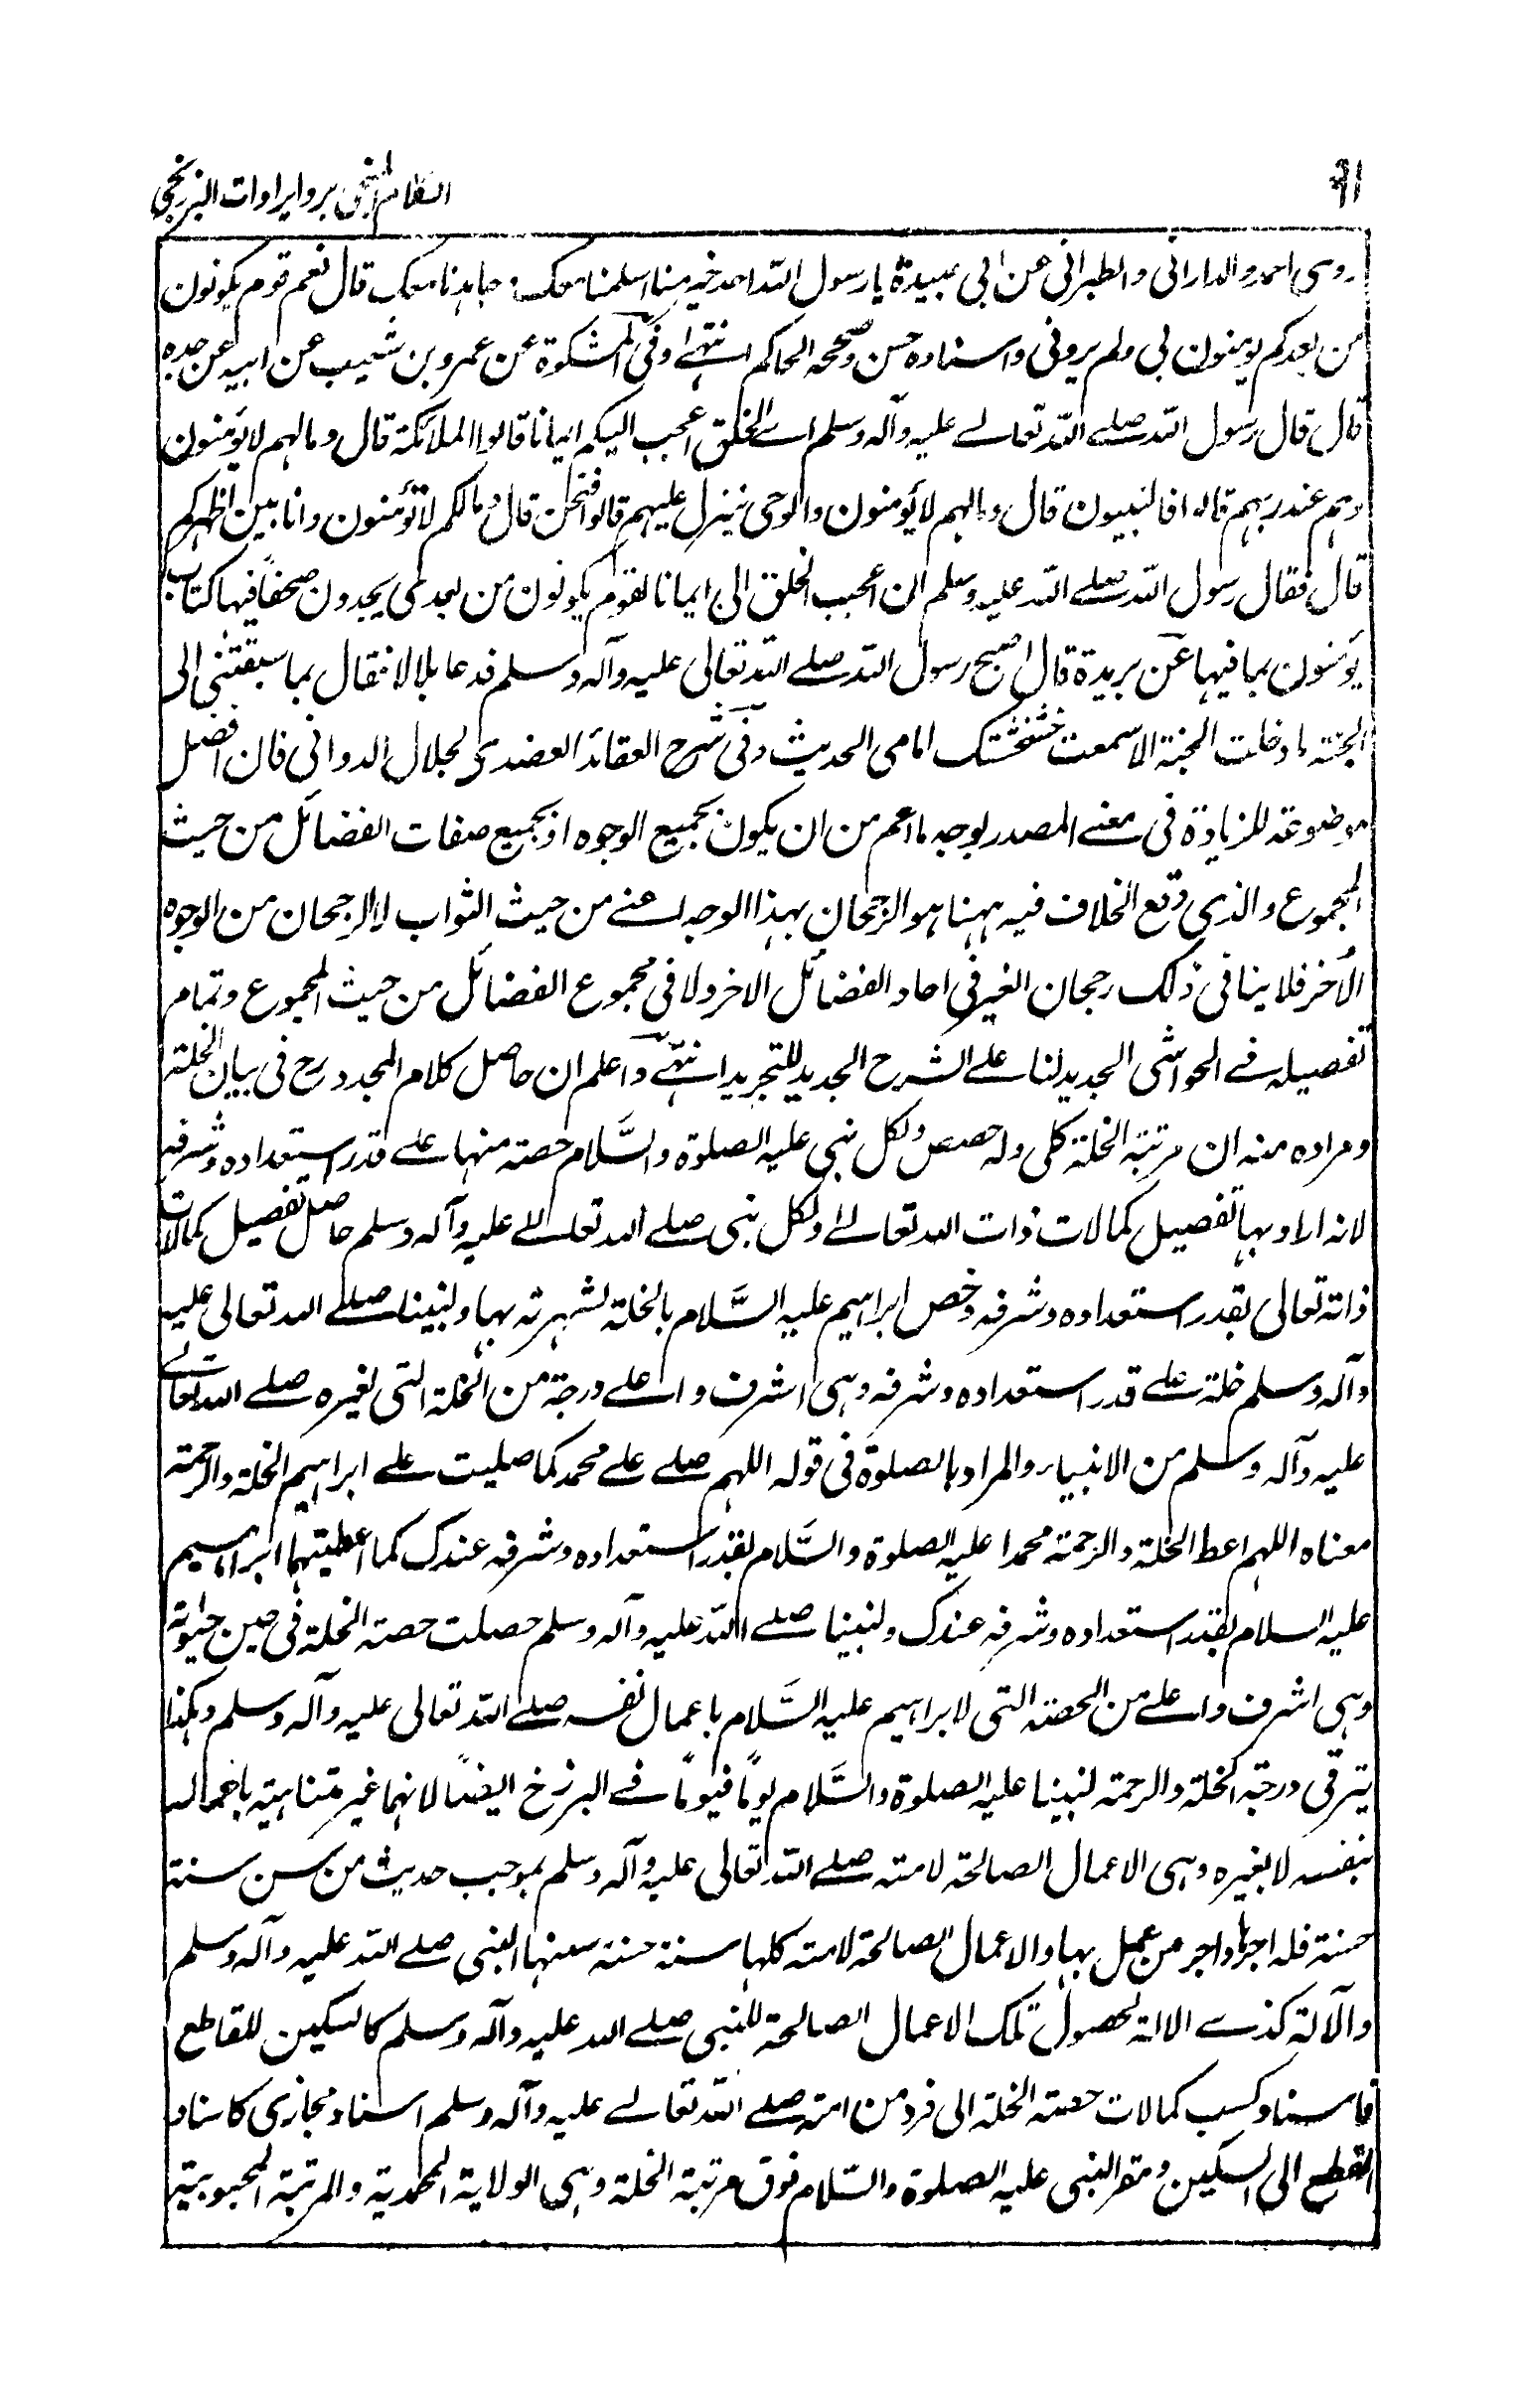 ٩١
الكلام المنجى برد ايرادات البرزنجى
روى احمد والدارانى والطبرانى عن ابى عبيدة يا رسول الله احد خير منا اسلمنا معك و جاهدنا معك قال نعم قوم يكونون
من بعدكم يومنون بى ولم يرونى واسناده حسن وصححه الحاكم انتهى وفى المشكوة عن عمرو بن شعيب عن ابيه عن جده
قال قال رسول الله صلے الله تعالے عليه وآله وسلم اے الخلق اعجب اليكم ايمانا قالوا الملائكة قال ومالهم لا يؤمنون
وهم عند ربهم قالوا فالنبيون قال ومالهم لا يؤمنون والوحى ينزل عليهم قالوا فنحن قال ومالكم لا تؤمنون وانا بين اظهركم
قال فقال رسول الله صلے الله عليه وسلم ان اعجب الخلق الى ايمانا لقوم يكونون من بعدى يجدون صحفاً فيها كتاب
يؤمنون بما فيها عن بريدة قال اصبح رسول الله صلے الله تعالى عليه وآله وسلم فدعا بلالا فقال بما سبقتنى الى
الجنة ما دخلت الجنة الا سمعت خشخشتك امامى الحديث وفى شرح العقائد العضدى لجلال الدوانى فان افضل
موضوعة للزيادة فى معنے المصدر بوجه ما اعم من ان يكون بجميع الوجوه او بجميع صفات الفضائل من حيث
المجموع والذى وقع الخلاف فيه ههنا هو الرجحان بهذا الوجه اعنے من حيث الثواب لا الرجحان من الوجوه
الأخر فلا ينافى ذلك رجحان الغير فى احاد الفضائل الاخر ولا فى مجموع الفضائل من حيث المجموع وتمام
تفصيله فے الحواشى الجديد لنا علے الشرح الجديد للتجريد انتهى واعلم ان حاصل كلام المجدد رح فى بيان الخلة
ومراده منه ان مرتبة الخلة كلى وله حصص ولكل نبى عليه الصلوة والسَّلام حصة منها علے قدر استعداده وشرفه
لانه اراد بها تفصيل كمالات ذات الله تعالے ولكل نبى صلے الله تعالے عليه وآله وسلم حاصل تفصيل كمالات
ذاته تعالى بقدر استعداده وشرفه وخص ابراهيم عليه السَّلام بالخلة لشهرته بها ولنبينا صلے الله تعالى عليه
وآله وسلم خلة علے قدر استعداده وشرفه وهى اشرف واعلے درجة من الخلة التى لغيره صلے الله تعالے
عليه وآله وسلم من الانبياء والمراد بالصلوة فى قوله اللهم صلے علے محمد كما صليت علے ابراهيم الخلة والرحمة
معناه اللهم اعط الخلة والرحمة محمدا عليه الصلوة والسَّلام بقدر استعداده وشرفه عندك كما اعطيتهما ابراهيم
عليه السلام بقدر استعداده وشرفه عندك ولنبينا صلے الله عليه وآله وسلم حصلت حصة الخلة فى حين حيوته
وهى اشرف واعلے من الحصة التى لابراهيم عليه السَّلام باعمال نفسه صلے الله تعالى عليه وآله وسلم وهكذا
يترقى درجة الخلة والرحمة لنبينا عليه الصلوة والسَّلام يوماً فيوماً فے البرزخ ايضاً لانهما غير متناهية باعماله
بنفسه لا بغيره وهى الاعمال الصالحة لامته صلے الله تعالى عليه وآله وسلم بموجب حديث من سن سنة
حسنة فله اجرها واجر من عمل بها والاعمال الصالحة لامته كلها سنة حسنة سنها النبى صلے الله عليه وآله وسلم
والآلة كذے الالة لحصول تلك الاعمال الصالحة للنبى صلے الله عليه وآله وسلم كالسكين للقاطع
فاسناد كسب كمالات حصة الخلة الى فرد من امته صلے الله تعالے عليه وآله وسلم اسناد مجازى كاسناد
القطع الى السكين ومقر النبى عليه الصلوة والسَّلام فوق مرتبة الخلة وهى الولاية المحمدية والمرتبة المحبوبية